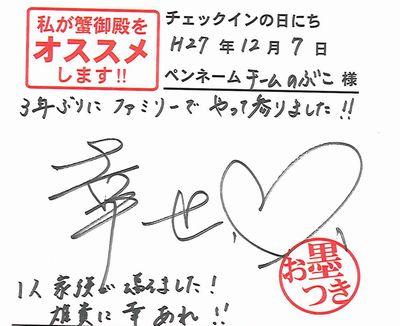 私が蟹御殿を
オススメ
します!!
チェックインの日にち
H27年12月7日
ペンネーム チームのぶこ 様
3年ぶりに ファミリーで やって参りました!!
幸せ♡
お墨つき
1人 家族が増えました!
雄貴に幸あれ!!